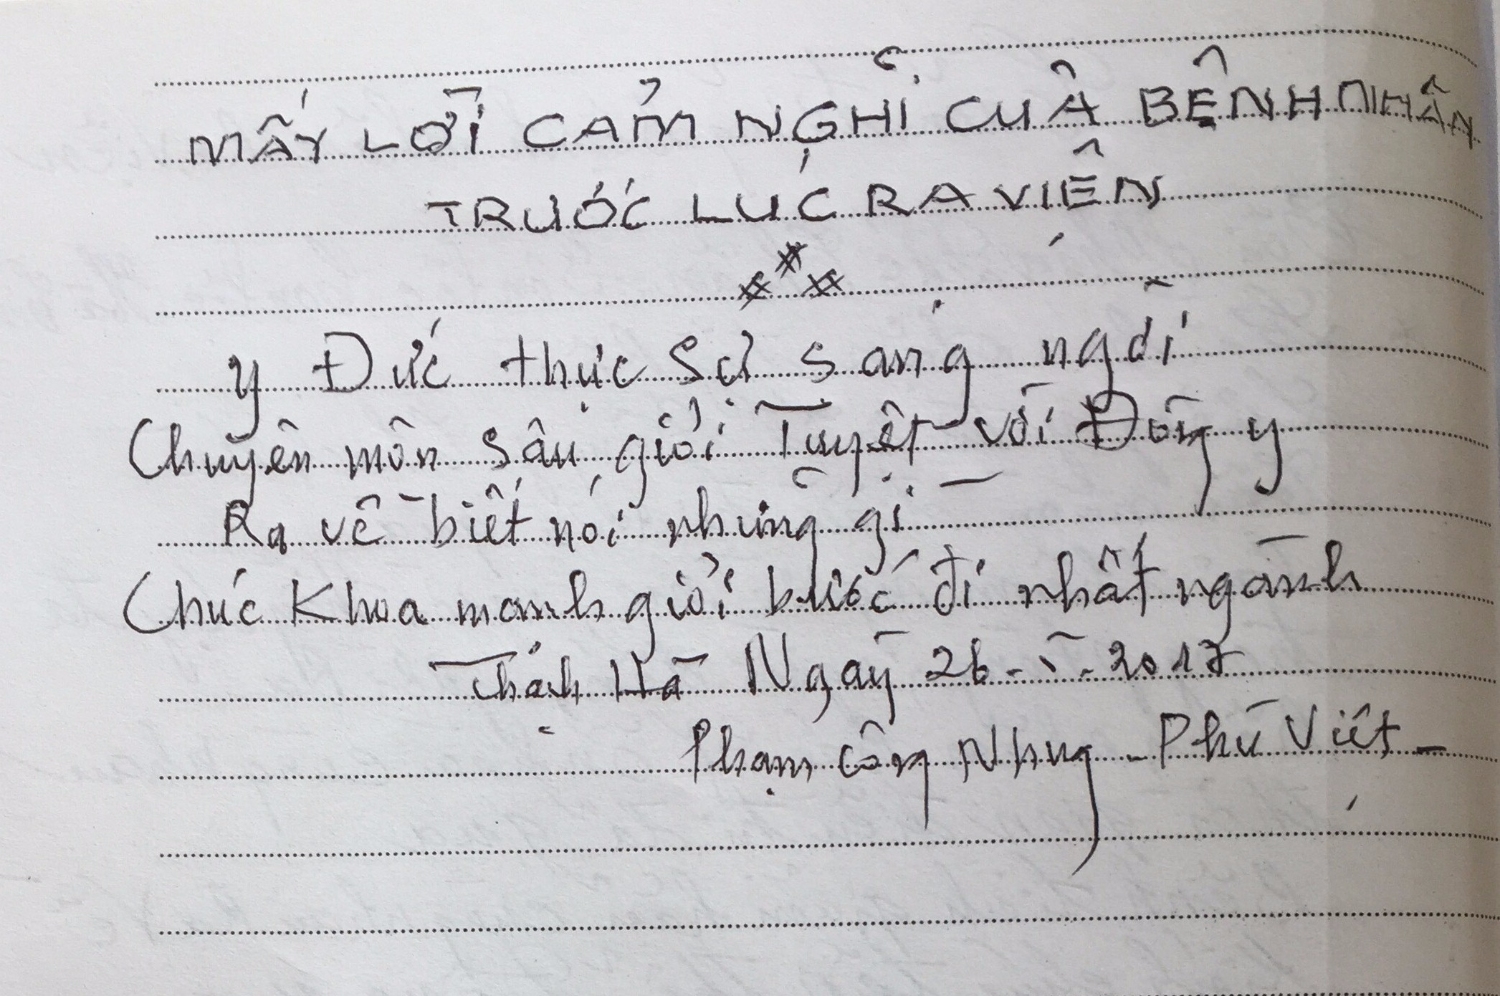 MẤY LỜI CẢM NGHĨ CỦA BỆNH NHÂN
TRƯỚC LÚC RA VIỆN
Y Đức thực sự sáng ngời
Chuyên môn sâu giỏi Tuyệt vời Đông y
Ra về biết nói những gì
Chúc Khoa mạnh giỏi bước đi nhất ngành
Thạch Hà Ngày 26-5-2017
Phạm Công Nhung - Phù Việt -